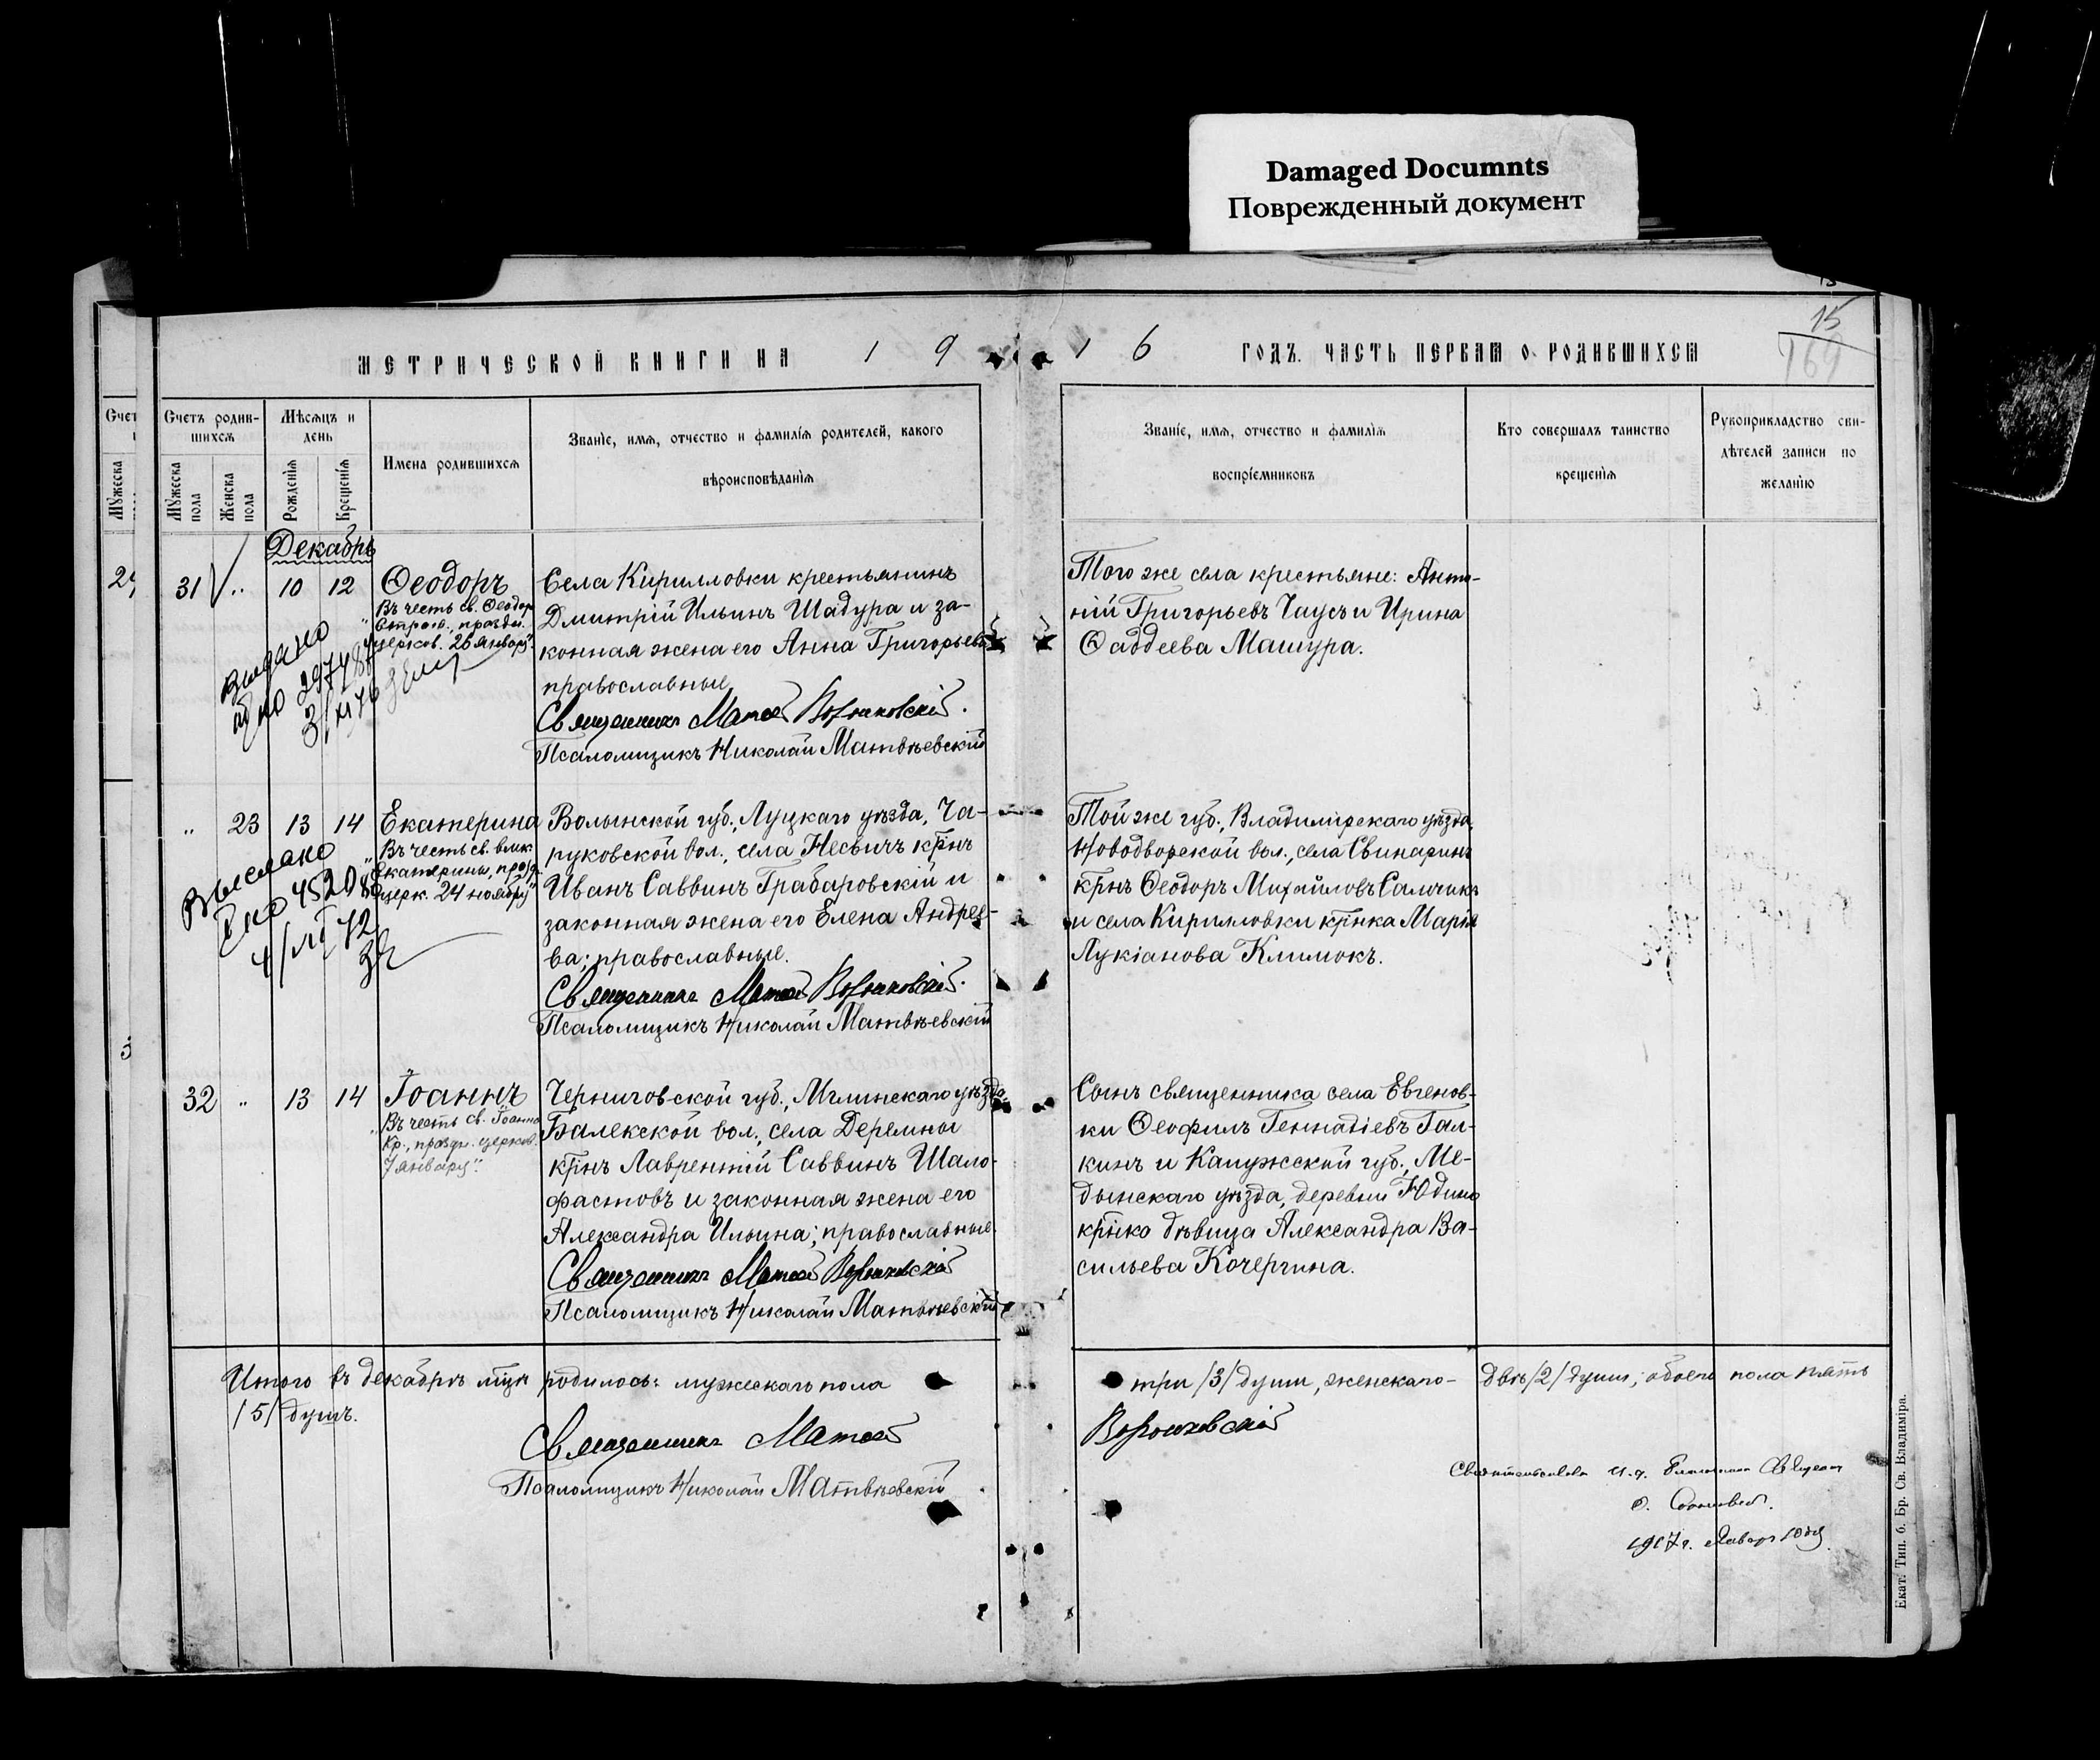 Damaged Documnts
Поврежденный документ
15
169
МЕТРИЧЕСКОЙ КНИГИ НА 1 9 1 6 ГОДЪ. ЧАСТЬ ПЕРВАЯ О РОДИВШИХСЯ
Счетъ родив-
шихся
Мѣсяцъ и
день
Мужеска
пола
Женска
пола
Рожденія
Крещенія
Имена родившихся
Званіе, имя, отчество и фамилія родителей, какого
вѣроисповѣданія
Званіе, имя, отчество и фамилія
воспріемниковъ
Кто совершалъ таинство
крещенія
Рукоприкладство сви-
дѣтелей записи по
желанію
Декабрь
31 „ 10 12 Ѳеодоръ
Въ честь св. Ѳеодор
Строго., празди.
церков. 26 января"
Выдано
Села Кирилловки крестьянинъ
Дмитрій Ильинъ Шадура и за-
конная жена его Анна Григорьева
православные
Священникъ Матѳей
Псаломщикъ Николай Матвѣевскій
Того же села крестьяне: Анто-
ній Григорьевъ Чаусъ и Ирина
Ѳаддеева Машура.
„ 23 13 14 Екатерина
„Въ честь св. влик.
Екатерины, празд.
церк. 24 ноября"
Выслано
Волынской губ., Луцкаго уѣзда, Ча-
руковской вол., села Несвичъ кр̃нъ
Иванъ Саввинъ Грабаровскій и
законная жена его Елена Андрее-
ва; православные.
Священникъ Матѳей
Псаломщикъ Николай Матвѣевскій
Той же губ., Владимірскаго уѣзда,
Новодворской вол., села Свинаринъ
кр̃нъ Ѳеодоръ Михайловъ Сальчикъ
и села Кирилловки кр̃нка Марія
Лукіанова Климокъ.
32 „ 13 14 Іоаннъ
„Въ честь св. Іоанна
Кр., праздн. церков.
7 января".
Черниговской губ., Мглинскаго уѣзда,
Балекской вол., села Деремны
кр̃нъ Лаврентій Саввинъ Шало-
фастовъ и законная жена его
Александра Ильина; православные.
Священникъ Матѳей
Псаломщикъ Николай Матвѣевскій
Сынъ священника села Евгенов-
ки Ѳеофилъ Геннадіевъ Гал-
кинъ и Калужской губ., Ме-
дынскаго уѣзда, деревни Юдино
кр̃нка дѣвица Александра Ва-
сильева Кочергина.
Итого въ декабрѣ мцѣ родилось: мужескаго пола три /3/ души, женскаго – двѣ /2/ души; обоего пола пять
/5/ душъ.
Священникъ Матѳей
Псаломщикъ Николай Матвѣевскій
1917 г. Января 10 дня
Екат. Тип. б. Бр. Св. Владиміра.